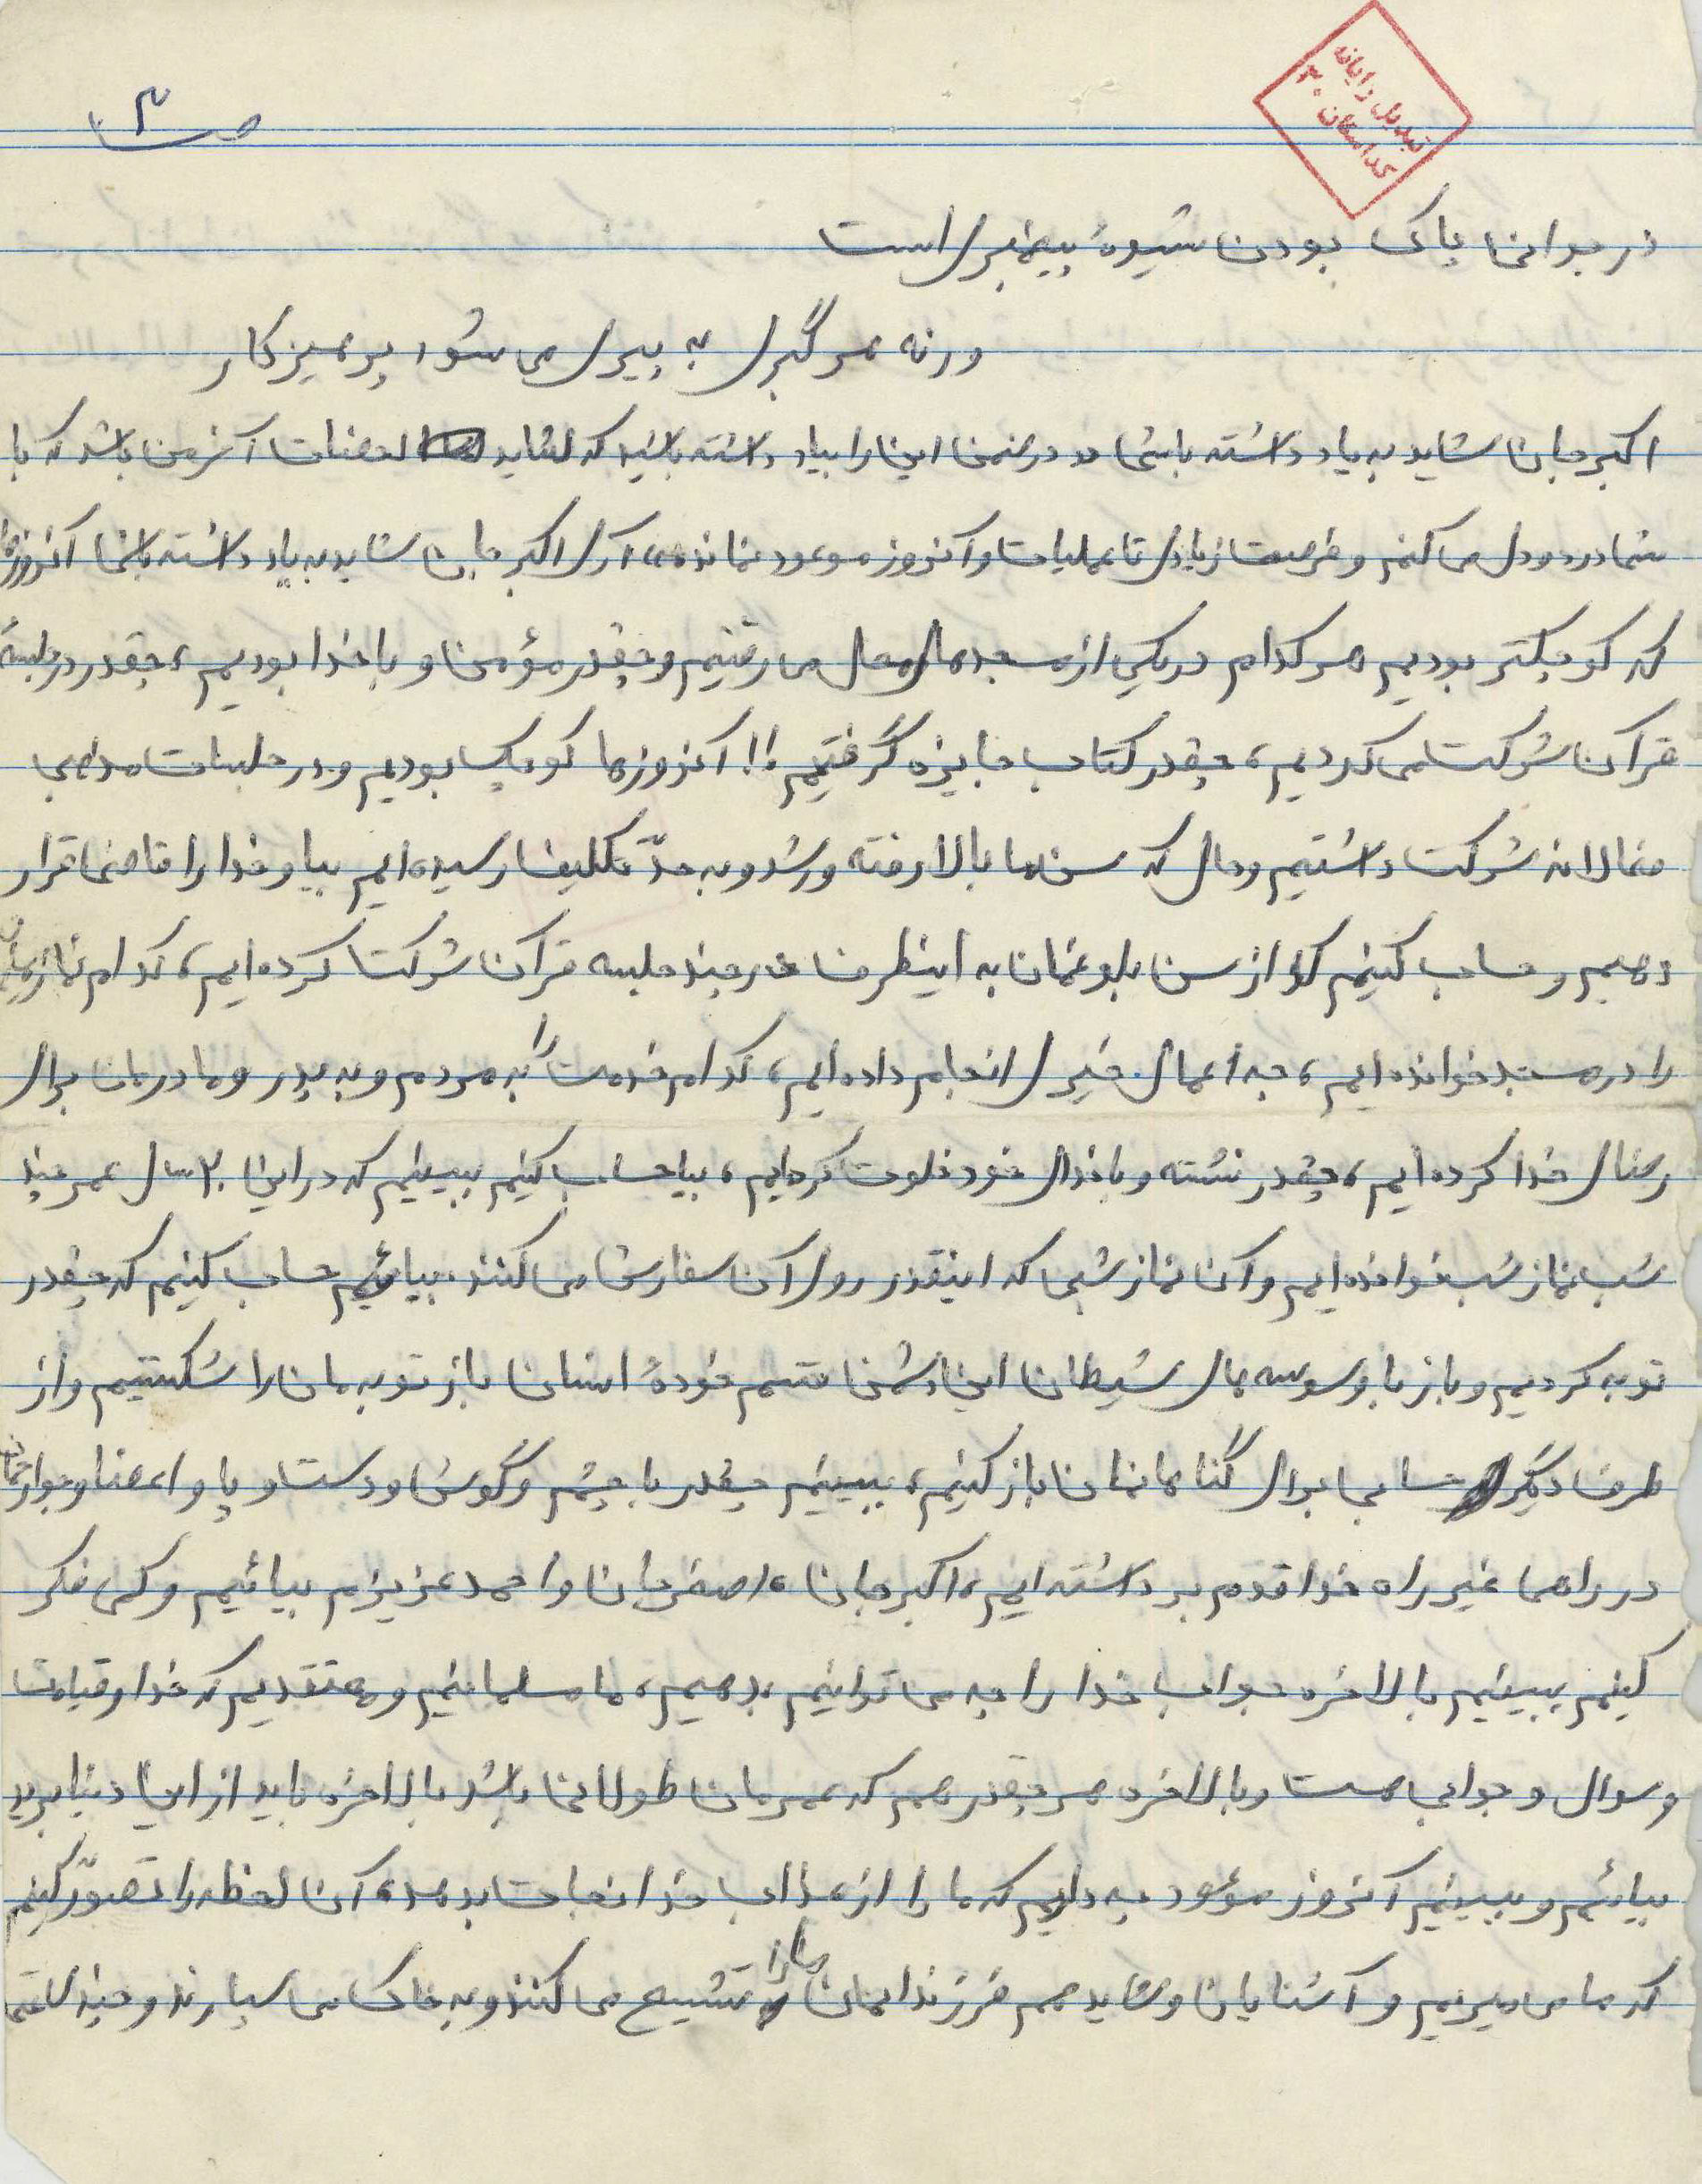 تبدیل رایانه
کد اسکان ۳۰
ص ۳
در جوانی پاک بودن شیوهٔ پیغمبری است
ورنه هر گبری به پیری می شود پرهیزکار
اکبر جان شاید به یاد داشته باشی و در ضمن این را بیاد داشته باشید که شاید لحظات آخر من باشد که با
شما درد و دل می کنم و فرصت زیادی تا عملیات و آنروز موعود نمانده، آری اکبر جان شاید به یاد داشته باشی آنروزها
که کوچکتر بودیم هر کدام در یکی از مسجدهای محل می رفتیم و چقدر مؤمن و با خدا بودیم، چقدر در جلسهٔ
قرآن شرکت می کردیم، چقدر کتاب جایزه گرفتیم!! آنروزها کوچک بودیم و در جلسات مذهبی
فعالانه شرکت داشتیم و حال که سن ما بالا رفته و رشد و به حدّ تکلیف رسیده ایم بیا و خدا را قاضی قرار
دهیم و حساب کنیم که از سن بلوغمان به اینطرف در چند جلسه قرآن شرکت کرده ایم، کدام نمازمان
را در مسجد خوانده ایم، چه اعمال خیری انجام داده ایم، کدام خدمت را به مردم و به پدر و مادرمان برای
رضای خدا کرده ایم، چقدر نشسته و با خدای خود خلوت کرده ایم، بیا حساب کنیم ببینیم که در این ۲۰ سال عمر چند
شب نماز شب خوانده ایم و آن نماز شبی که اینقدر روی آن سفارش می کنند. بیائیم حساب کنیم که چقدر
توبه کردیم و باز با وسوسه های شیطان این دشمن قسم خوردهٔ انسان باز توبه مان را شکستیم و از
طرف دیگر حسابی برای گناهانمان باز کنیم، ببینیم چقدر با چشم و گوش و دست و پا و اعضا و جوارحمان
در راهی غیر راه خدا قدم برداشته ایم، اکبر جان، اصغر جان و احمد عزیزم بیائیم و کمی فکر
کنیم ببینیم بالاخره جواب خدا را چه می توانیم بدهیم، ما مسلمانیم و معتقدیم که خدا و قیامت
و سوال و جوابی هست و بالاخره هر چقدر هم که عمرمان طولانی باشد بالاخره باید از این دنیا برید
بیائیم و ببینیم آنروز موعود چه داریم که ما را از عذاب خدا نجات بدهد، آن لحظه را تصوّر کنیم
که ما می میریم و آشنایان و شاید هم فرزندانمان ما را تشییع می کنند و به خاک می سپارند و چند ساعتی